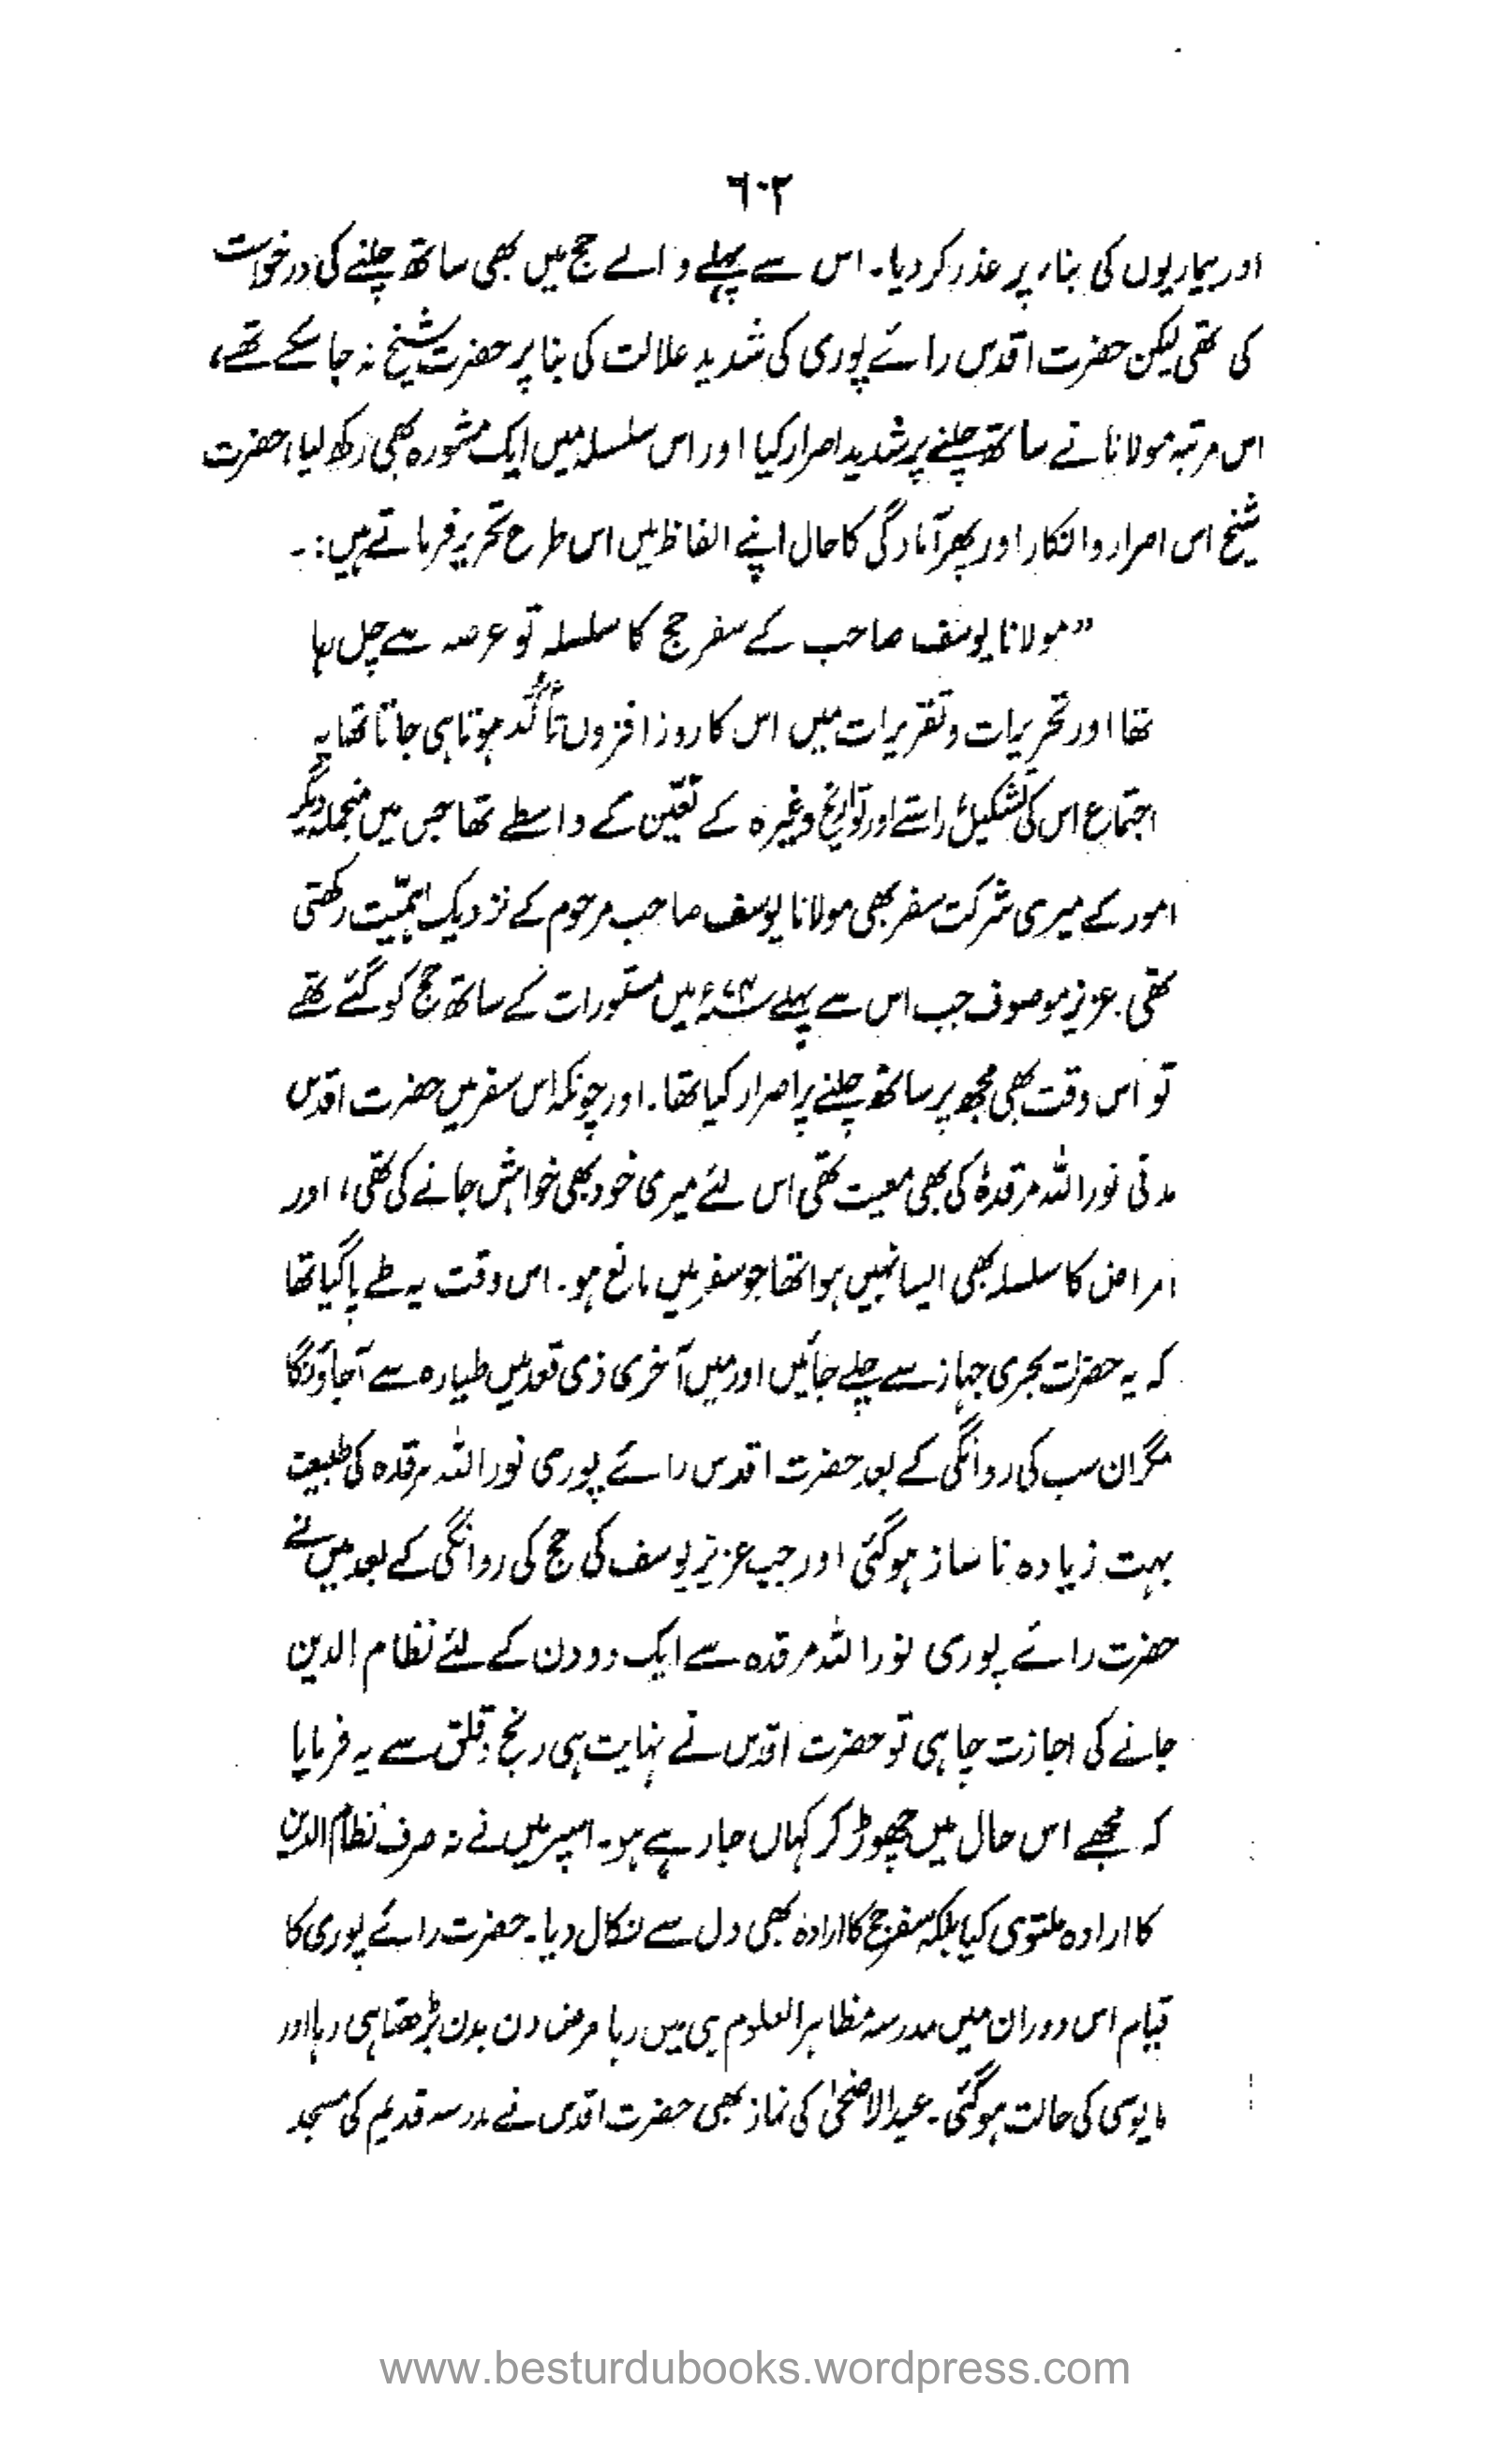 ٦٠٢
اور بیماریوں کی بناء پر عذر کر دیا۔ اس سے پہلے والے حج میں بھی ساتھ چلنے کی درخواست
کی تھی لیکن حضرت اقدس رائے پوری کی شدید علالت کی بنا پر حضرت شیخ نہ جا سکے تھے،
اس مرتبہ مولانا نے ساتھ چلنے پر شدید اصرار کیا اور اس سلسلہ میں ایک مشورہ بھی رکھ لیا، حضرت
شیخ اس اصرار و انکار اور پھر آمادگی کا حال اپنے الفاظ میں اس طرح تحریر فرماتے ہیں:۔
”مولانا یوسف صاحب کے سفر حج کا سلسلہ تو عرصہ سے چل رہا
تھا اور تحریرات و تقریرات میں اس کا روز افزوں تأکد ہوتا ہی جاتا تھا یہ
اجتماع اس کی تشکیل، راستے اور تواریخ وغیرہ کے تعیّن کے واسطے تھا جس میں منجملہ دیگر
امور کے میری شرکت سفر بھی مولانا یوسف صاحب مرحوم کے نزدیک اہمیّت رکھتی
تھی۔ عزیز موصوف جب اس سے پہلے ۷۴ھ میں مستورات کے ساتھ حج کو گئے تھے
تو اس وقت بھی مجھ پر ساتھ چلنے پر اصرار کیا تھا۔ اور چونکہ اس سفر میں حضرت اقدس
مدنی نور اللہ مرقدہٗ کی بھی معیت تھی اس لئے میری خود بھی خواہش جانے کی تھی، اور
امراض کا سلسلہ بھی ایسا نہیں ہوا تھا جو سفر میں مانع ہو۔ اس وقت یہ طے پا گیا تھا
کہ یہ حضرات بحری جہاز سے چلے جائیں اور میں آخری ذی قعدہ میں طیارہ سے آجاؤنگا
مگر ان سب کی روانگی کے بعد حضرت اقدس رائے پوری نور اللہ مرقدہ کی طبیعت
بہت زیادہ ناساز ہو گئی اور جب عزیز یوسف کی حج کی روانگی کے بعد میں نے
حضرت رائے پوری نور اللہ مرقدہ سے ایک دو دن کے لئے نظام الدین
جانے کی اجازت چاہی تو حضرت اقدس نے نہایت ہی رنج و قلق سے یہ فرمایا
کہ مجھے اس حال میں چھوڑ کر کہاں جا رہے ہو۔ اسپر میں نے نہ صرف نظام الدین
کا ارادہ ملتوی کیا بلکہ سفر حج کا ارادہ بھی دل سے نکال دیا۔ حضرت رائے پوری کا
قیام اس دوران میں مدرسہ مظاہر العلوم ہی میں رہا مرض دن بدن بڑھتا ہی رہا اور
مایوسی کی حالت ہو گئی۔ عید الاضحیٰ کی نماز بھی حضرت اقدس نے مدرسہ قدیم کی مسجد
www.besturdubooks.wordpress.com